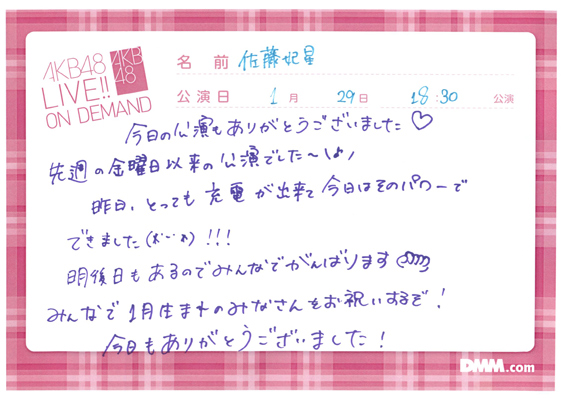 AKB48
LIVE!!
ON DEMAND
AKB
48
名 前 佐藤妃星
公演日 1月 29日 18:30 公演
今日の公演もありがとうございました♡
先週の金曜日以来の公演でした〜
昨日、とっても充電が出来て今日はそのパワーで
できました!!!
明後日もあるのでみんなでがんばります
みんなで1月生まれのみなさんをお祝いするぞ!
今日もありがとうございました!
DMM.com